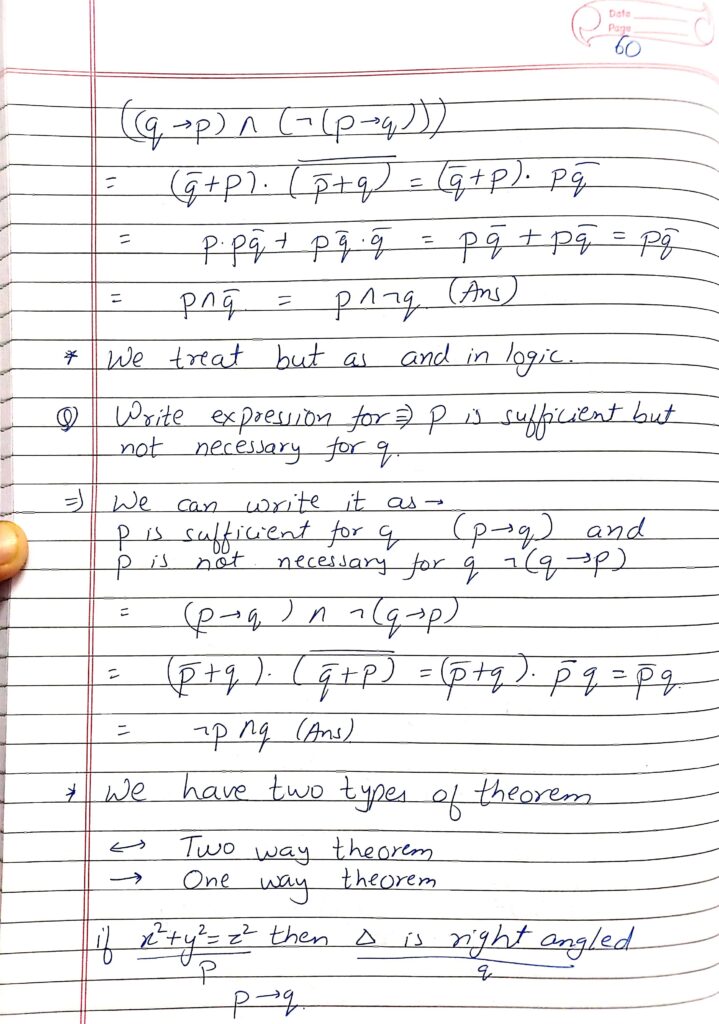 Date
Page
60
((q→p) ∧ (¬(p→q)))
= (q̅+p). (\overline{p̅+q}) = (q̅+p). pq̅
= p.pq̅ + pq̅.q̅ = pq̅ + pq̅ = pq̅
= p∧q̅ = p∧¬q (Ans)
* We treat but as and in logic.
Q) Write expression for ⇒ p is sufficient but
not necessary for q.
⇒) We can write it as →
p is sufficient for q (p→q) and
p is not necessary for q ¬(q→p)
= (p→q) ∧ ¬(q→p)
= (p̅+q). (\overline{q̅+p}) = (p̅+q). p̅q = p̅q
= ¬p∧q (Ans)
* We have two types of theorem
↔ Two way theorem
→ One way theorem
if x²+y²=z² then Δ is right angled
p q
p→q